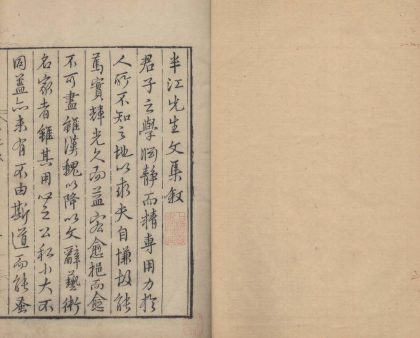 半江先生文集叙
君子之學凝静而精專用力於
人所不知之地以求夫自慊故能
篤實輝光久而益宏愈挹而愈
不可盡雖漢魏以降以文辭藝術
名家者雖其用心之公私小大不
同蓋亦未有不由斯道而能蚤